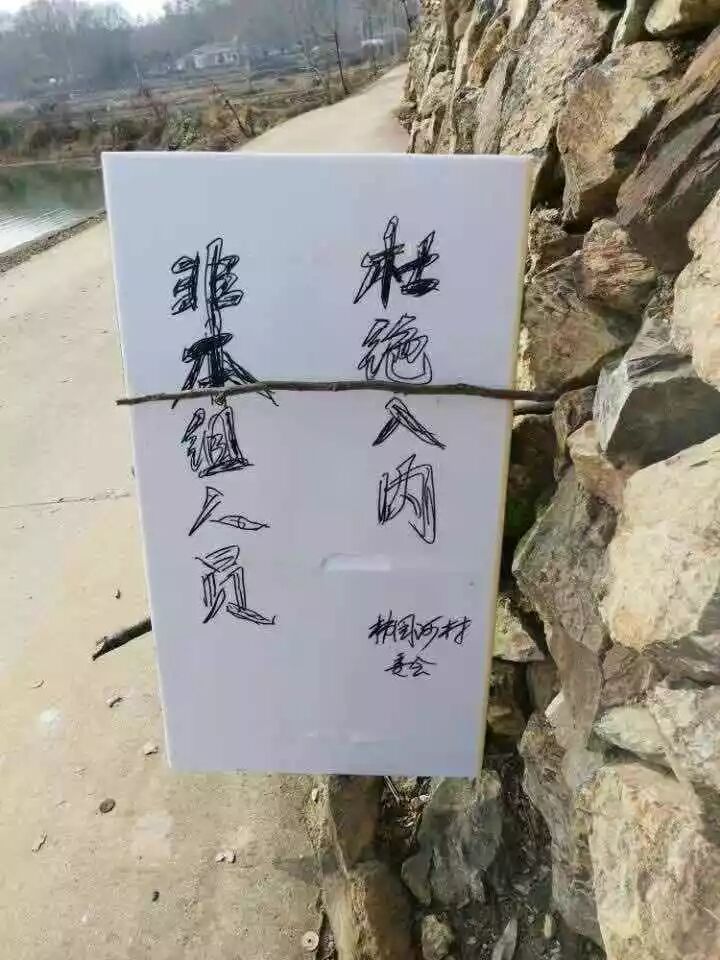 非本组人员
杜绝入内
林国河村
委会